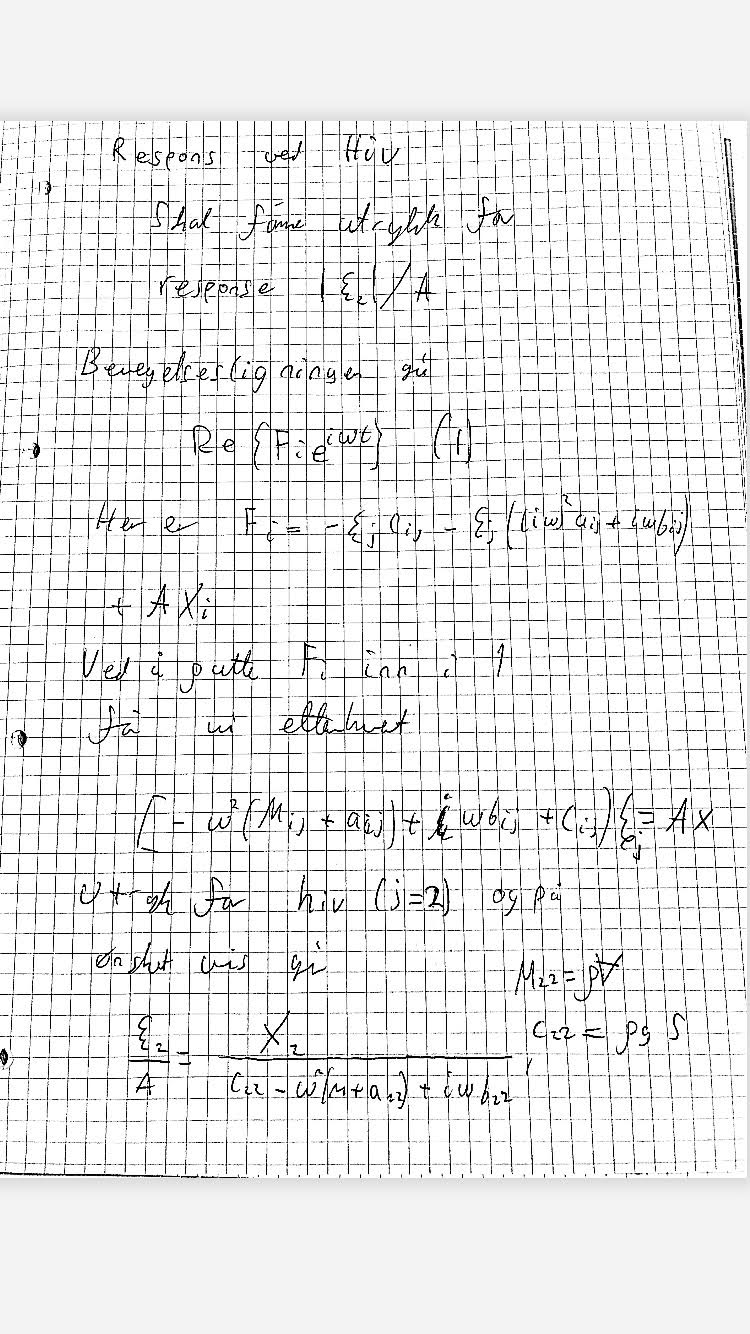 Respons ved Hiv
Skal finne utrykk for
response |ξ₂|/A
Bevegelsesligningen gir
Re {Fᵢe^{iωt}} (1)
Her er Fᵢ = -ξⱼ Cᵢⱼ - ξⱼ ((iω)² aᵢⱼ + iωbᵢⱼ)
+ A Xᵢ
Ved å putte Fᵢ inn i 1
får vi etterhvert
[- ω²(Mᵢⱼ + aᵢⱼ) + i ωbᵢⱼ + Cᵢⱼ) ξⱼ = A X
Utrykk for hiv (j=2) og på
ønsket vis gir
M₂₂ = ρ∀
ξ₂/A = X₂/(C₂₂ - ω²(M+a₂₂) + iωb₂₂) , C₂₂ = ρg S